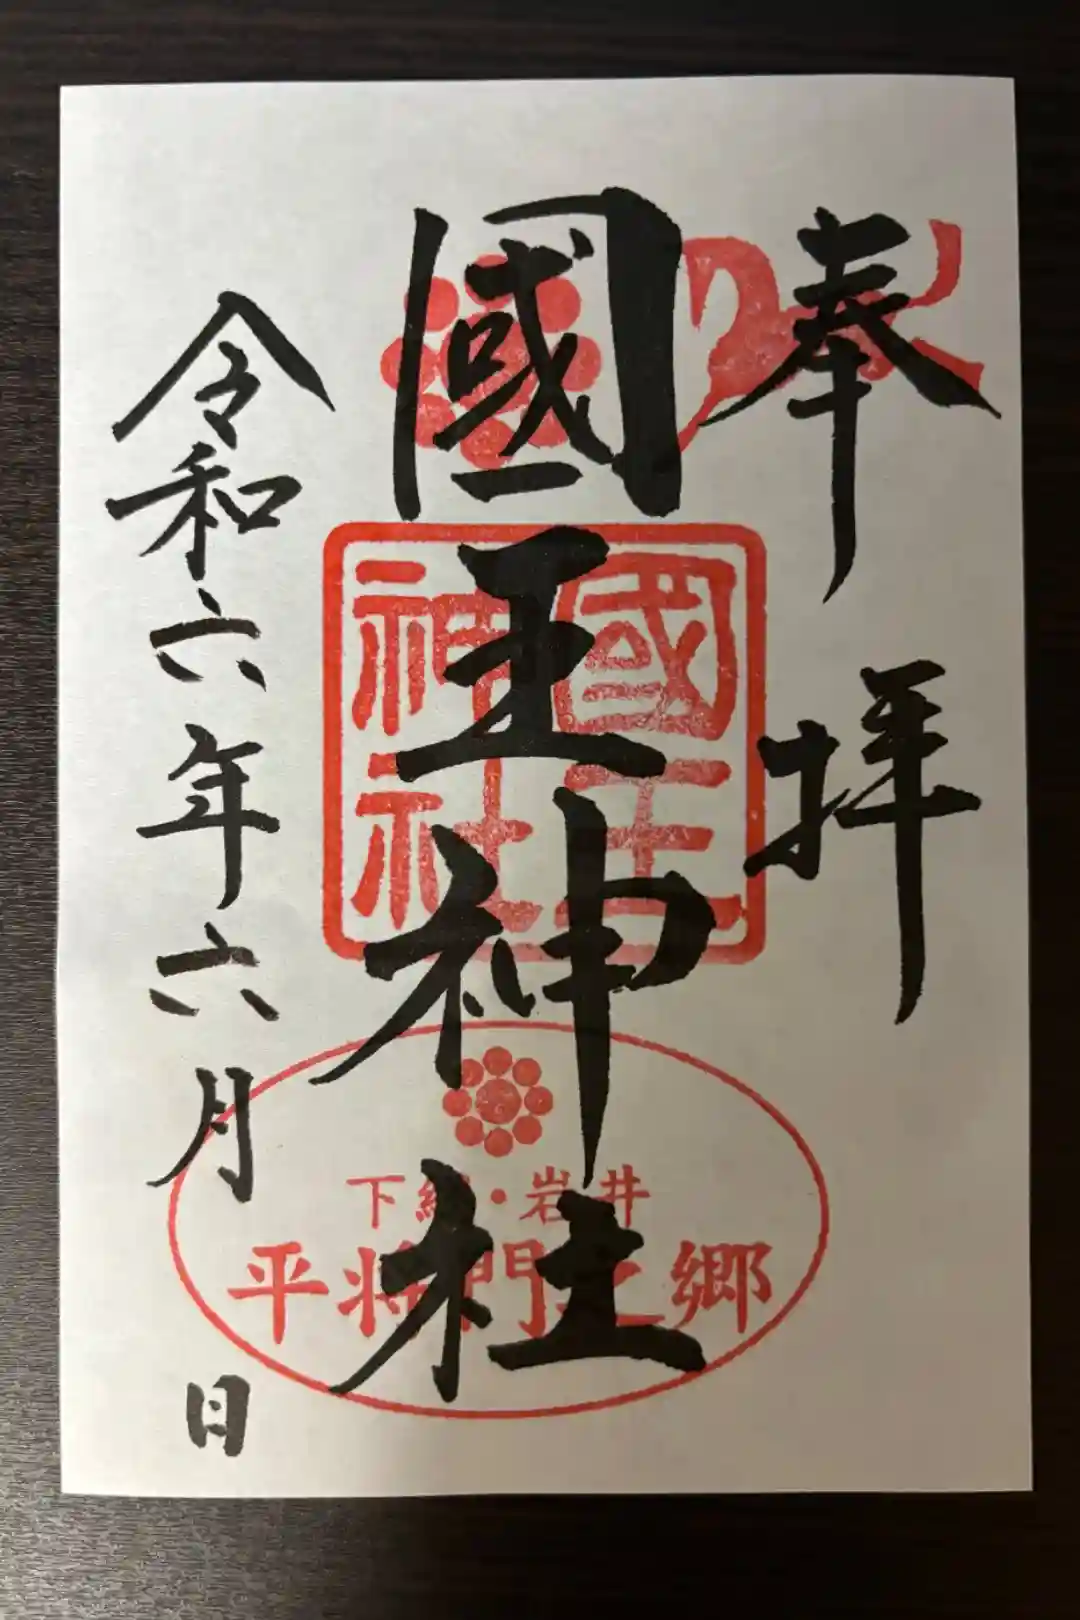 奉拝
國王神社
令和六年六月 日
國王
神社
下総・岩井
平将門之郷